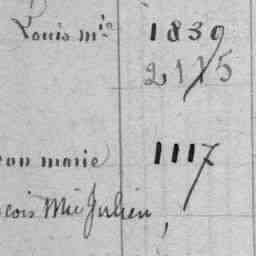 Louis min 1839
2115
ean marie 1117
çois Mie Julien,